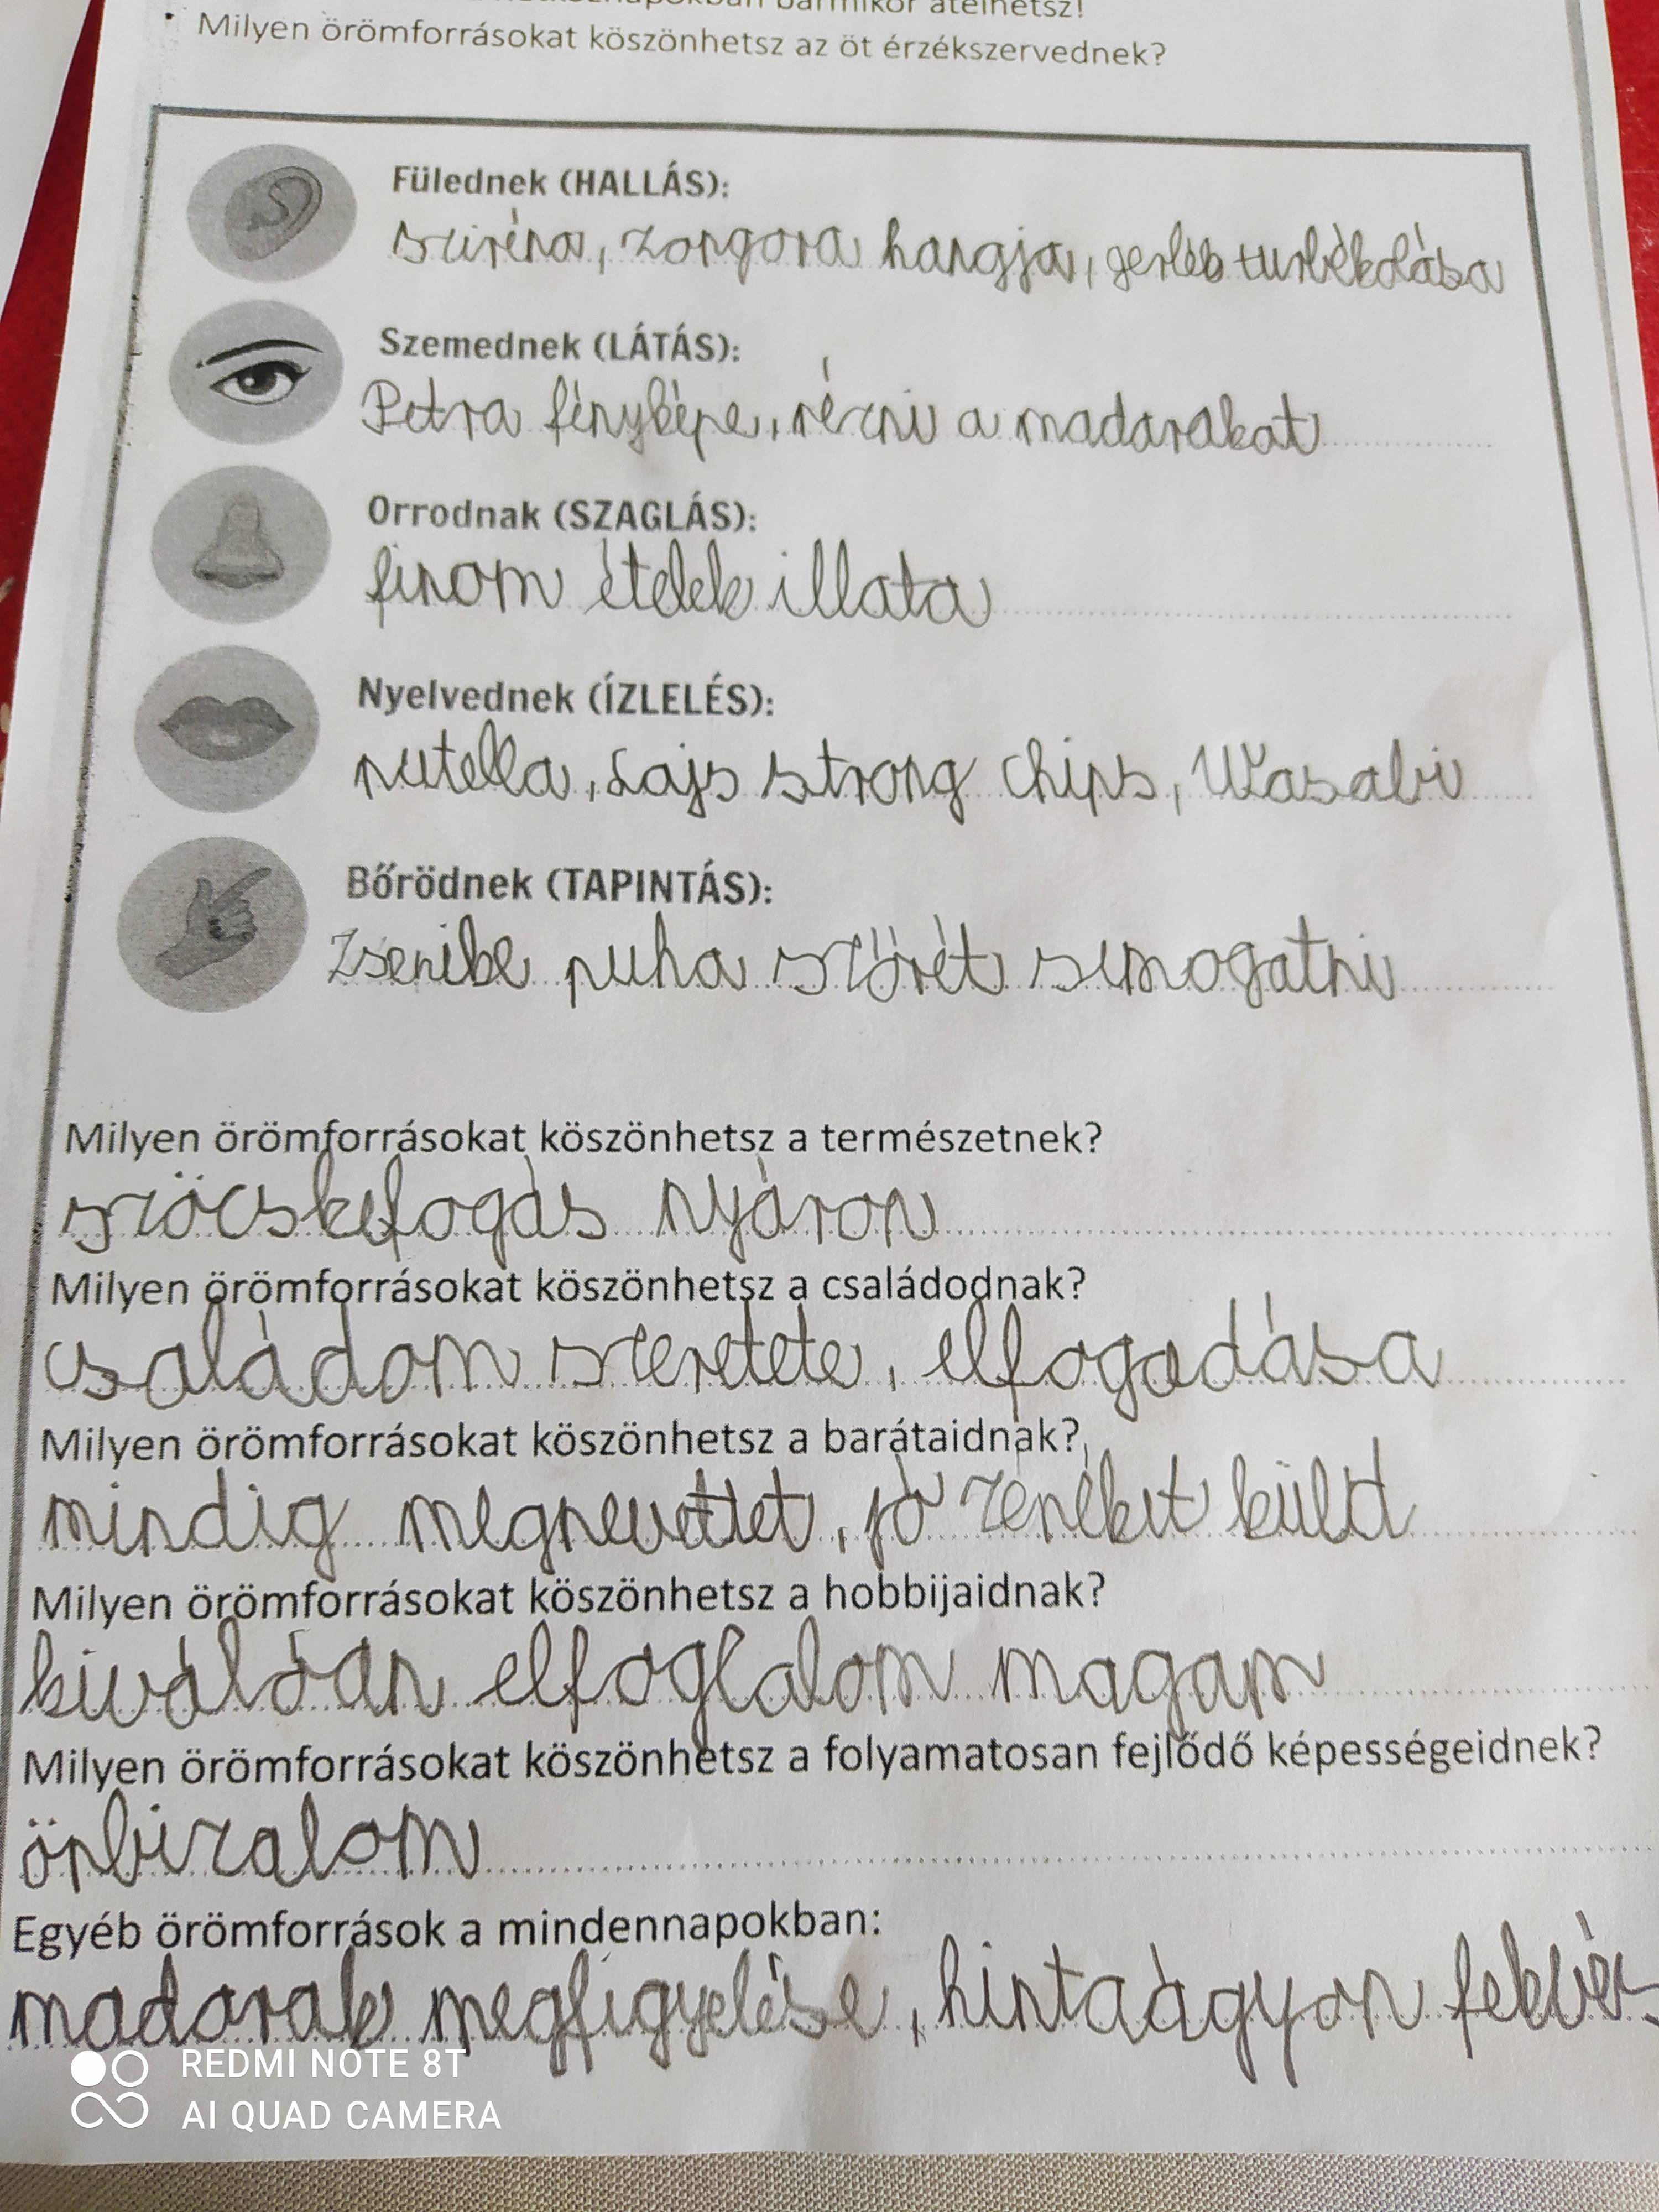 bármikor átélhetsz!
Milyen örömforrásokat köszönhetsz az öt érzékszervednek?
Fülednek (HALLÁS):
sziréna, zongora hangja, gerléb turbékolása
Szemednek (LÁTÁS):
Petra fényképe, nézni a madarakat
Orrodnak (SZAGLÁS):
finom ételek illata
Nyelvednek (ÍZLELÉS):
nutella, Lajs strong chips, Wasabi
Bőrödnek (TAPINTÁS):
Zsenibe puha szőrét simogatni
Milyen örömforrásokat köszönhetsz a természetnek?
szöcskefogás nyáron
Milyen örömforrásokat köszönhetsz a családodnak?
családom szeretete, elfogadása
Milyen örömforrásokat köszönhetsz a barátaidnak?
mindig megnevettet, jó zenéket küld
Milyen örömforrásokat köszönhetsz a hobbijaidnak?
kiválóan elfoglalom magam
Milyen örömforrásokat köszönhetsz a folyamatosan fejlődő képességeidnek?
önbizalom
Egyéb örömforrások a mindennapokban:
madarak megfigyelése, hintaágyon fekvés
REDMI NOTE 8T
AI QUAD CAMERA